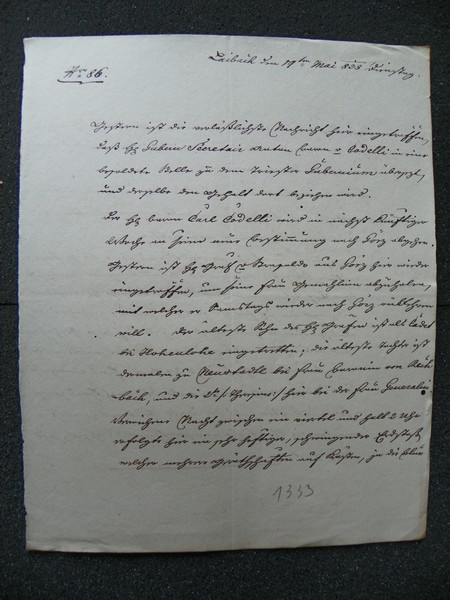 Laibach den 19ten Mai 833 Dienstag.
No 86.
Gestern ist die verläßlichste Nachricht hier eingetroffen,
daß H Gubern Secretair Anton Baron v Codelli in eine
besoldete Stelle zu dem Triester Gubernium übersetzt,
und derselbe den Gehalt dort beziehen wird.
Der H Baron Carl Codelli wird in nächst künftiger
Woche in seine neue Bestimmung nach Görz abgehen.
Gestern ist H Graf v aus Görz hier wieder
eingetroffen, um seine Frau Gemahlinn abzuhohlen,
mit welcher er Samstags wieder nach Görz rückkehren
will. Der älteste Sohn des H Grafen ist als Cadet
bei Hohenlohe eingetretten; die älteste Tochter ist
dermalen zu Neustadtl bei Frau Baronin von
bach, und die 2te hier bei der Frau Generalin
Verwichene Nacht zwischen ein viertel und halb 2 Uhr
erfolgte hier ein sehr heftiger, schwingender Erdstoß,
welcher mehrere Geräthschaften auf Kästen, ja die
1333